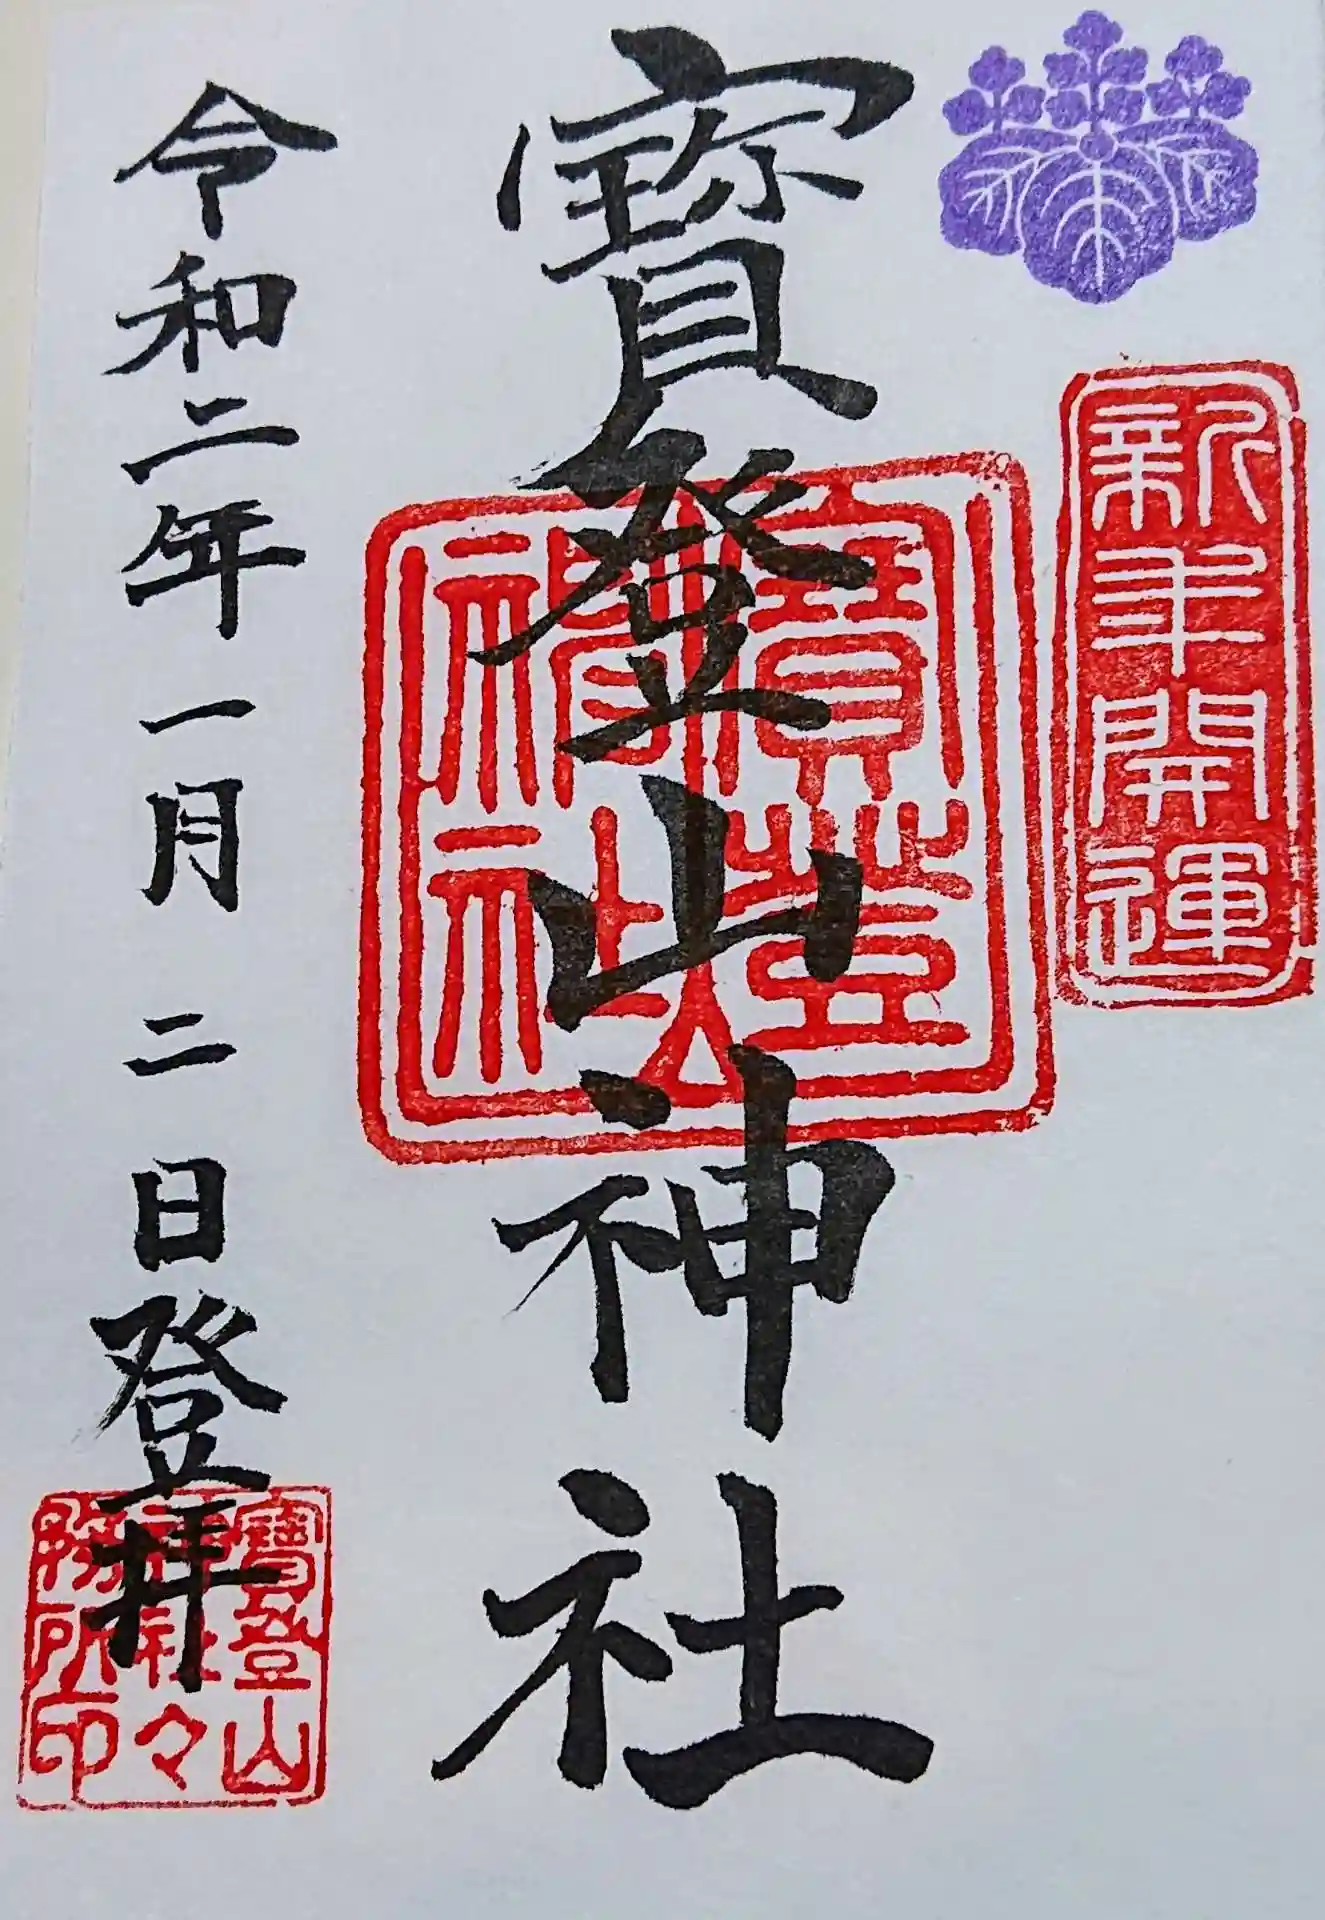 新年開運
寳登山神社
寳登山
神社
令和二年一月二日登拝
寳登山
神社々
務所印